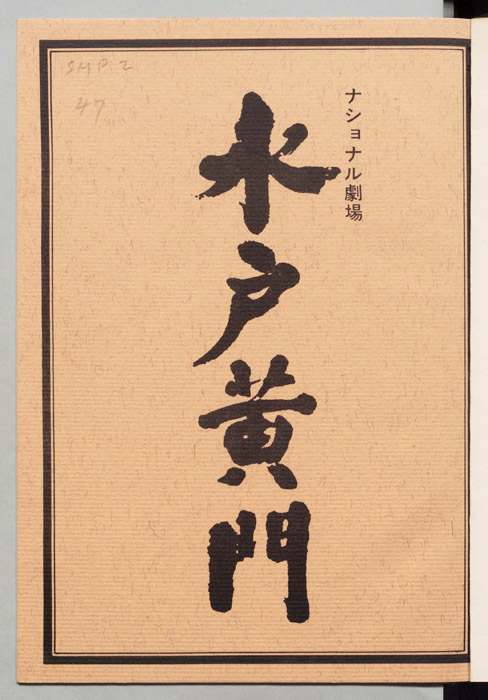 SMP 2
47
ナショナル劇場
水戸黄門